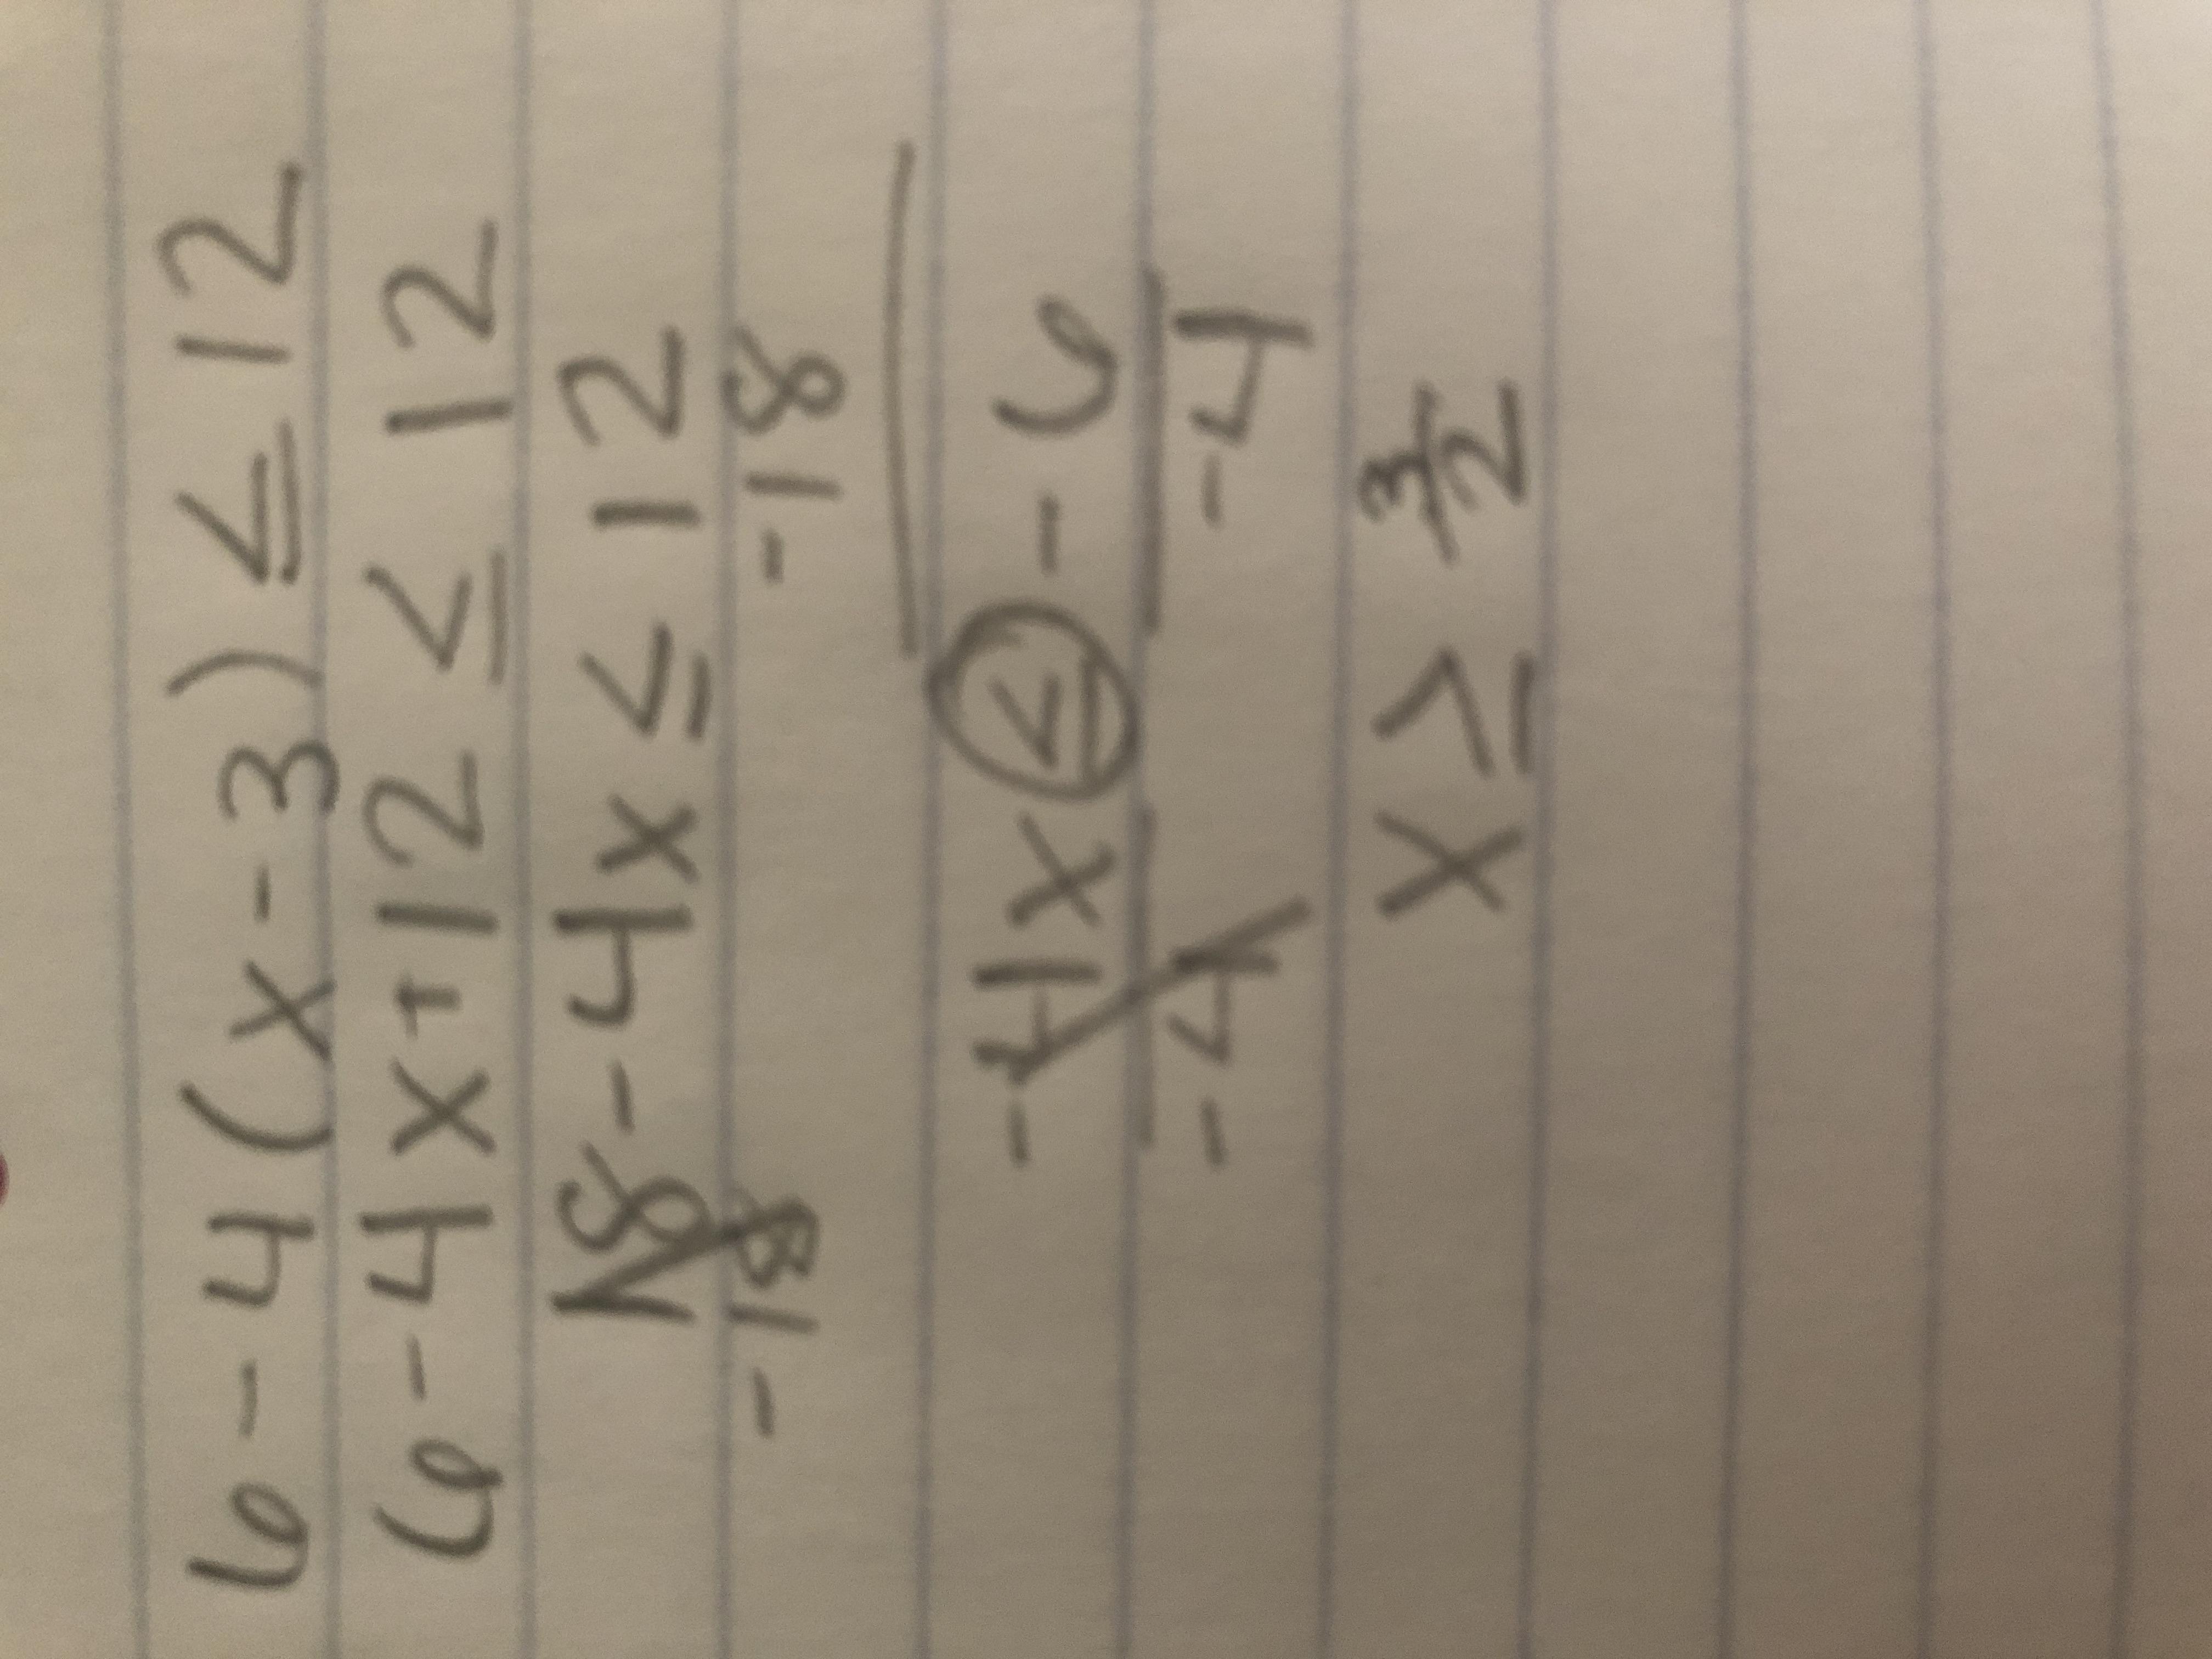 6-4(x-3) ≤ 12
6-4x+12 ≤ 12
18-4x ≤ 12
-18 -18
-4x ≤ -6
-4 -4
x ≥ 3/2